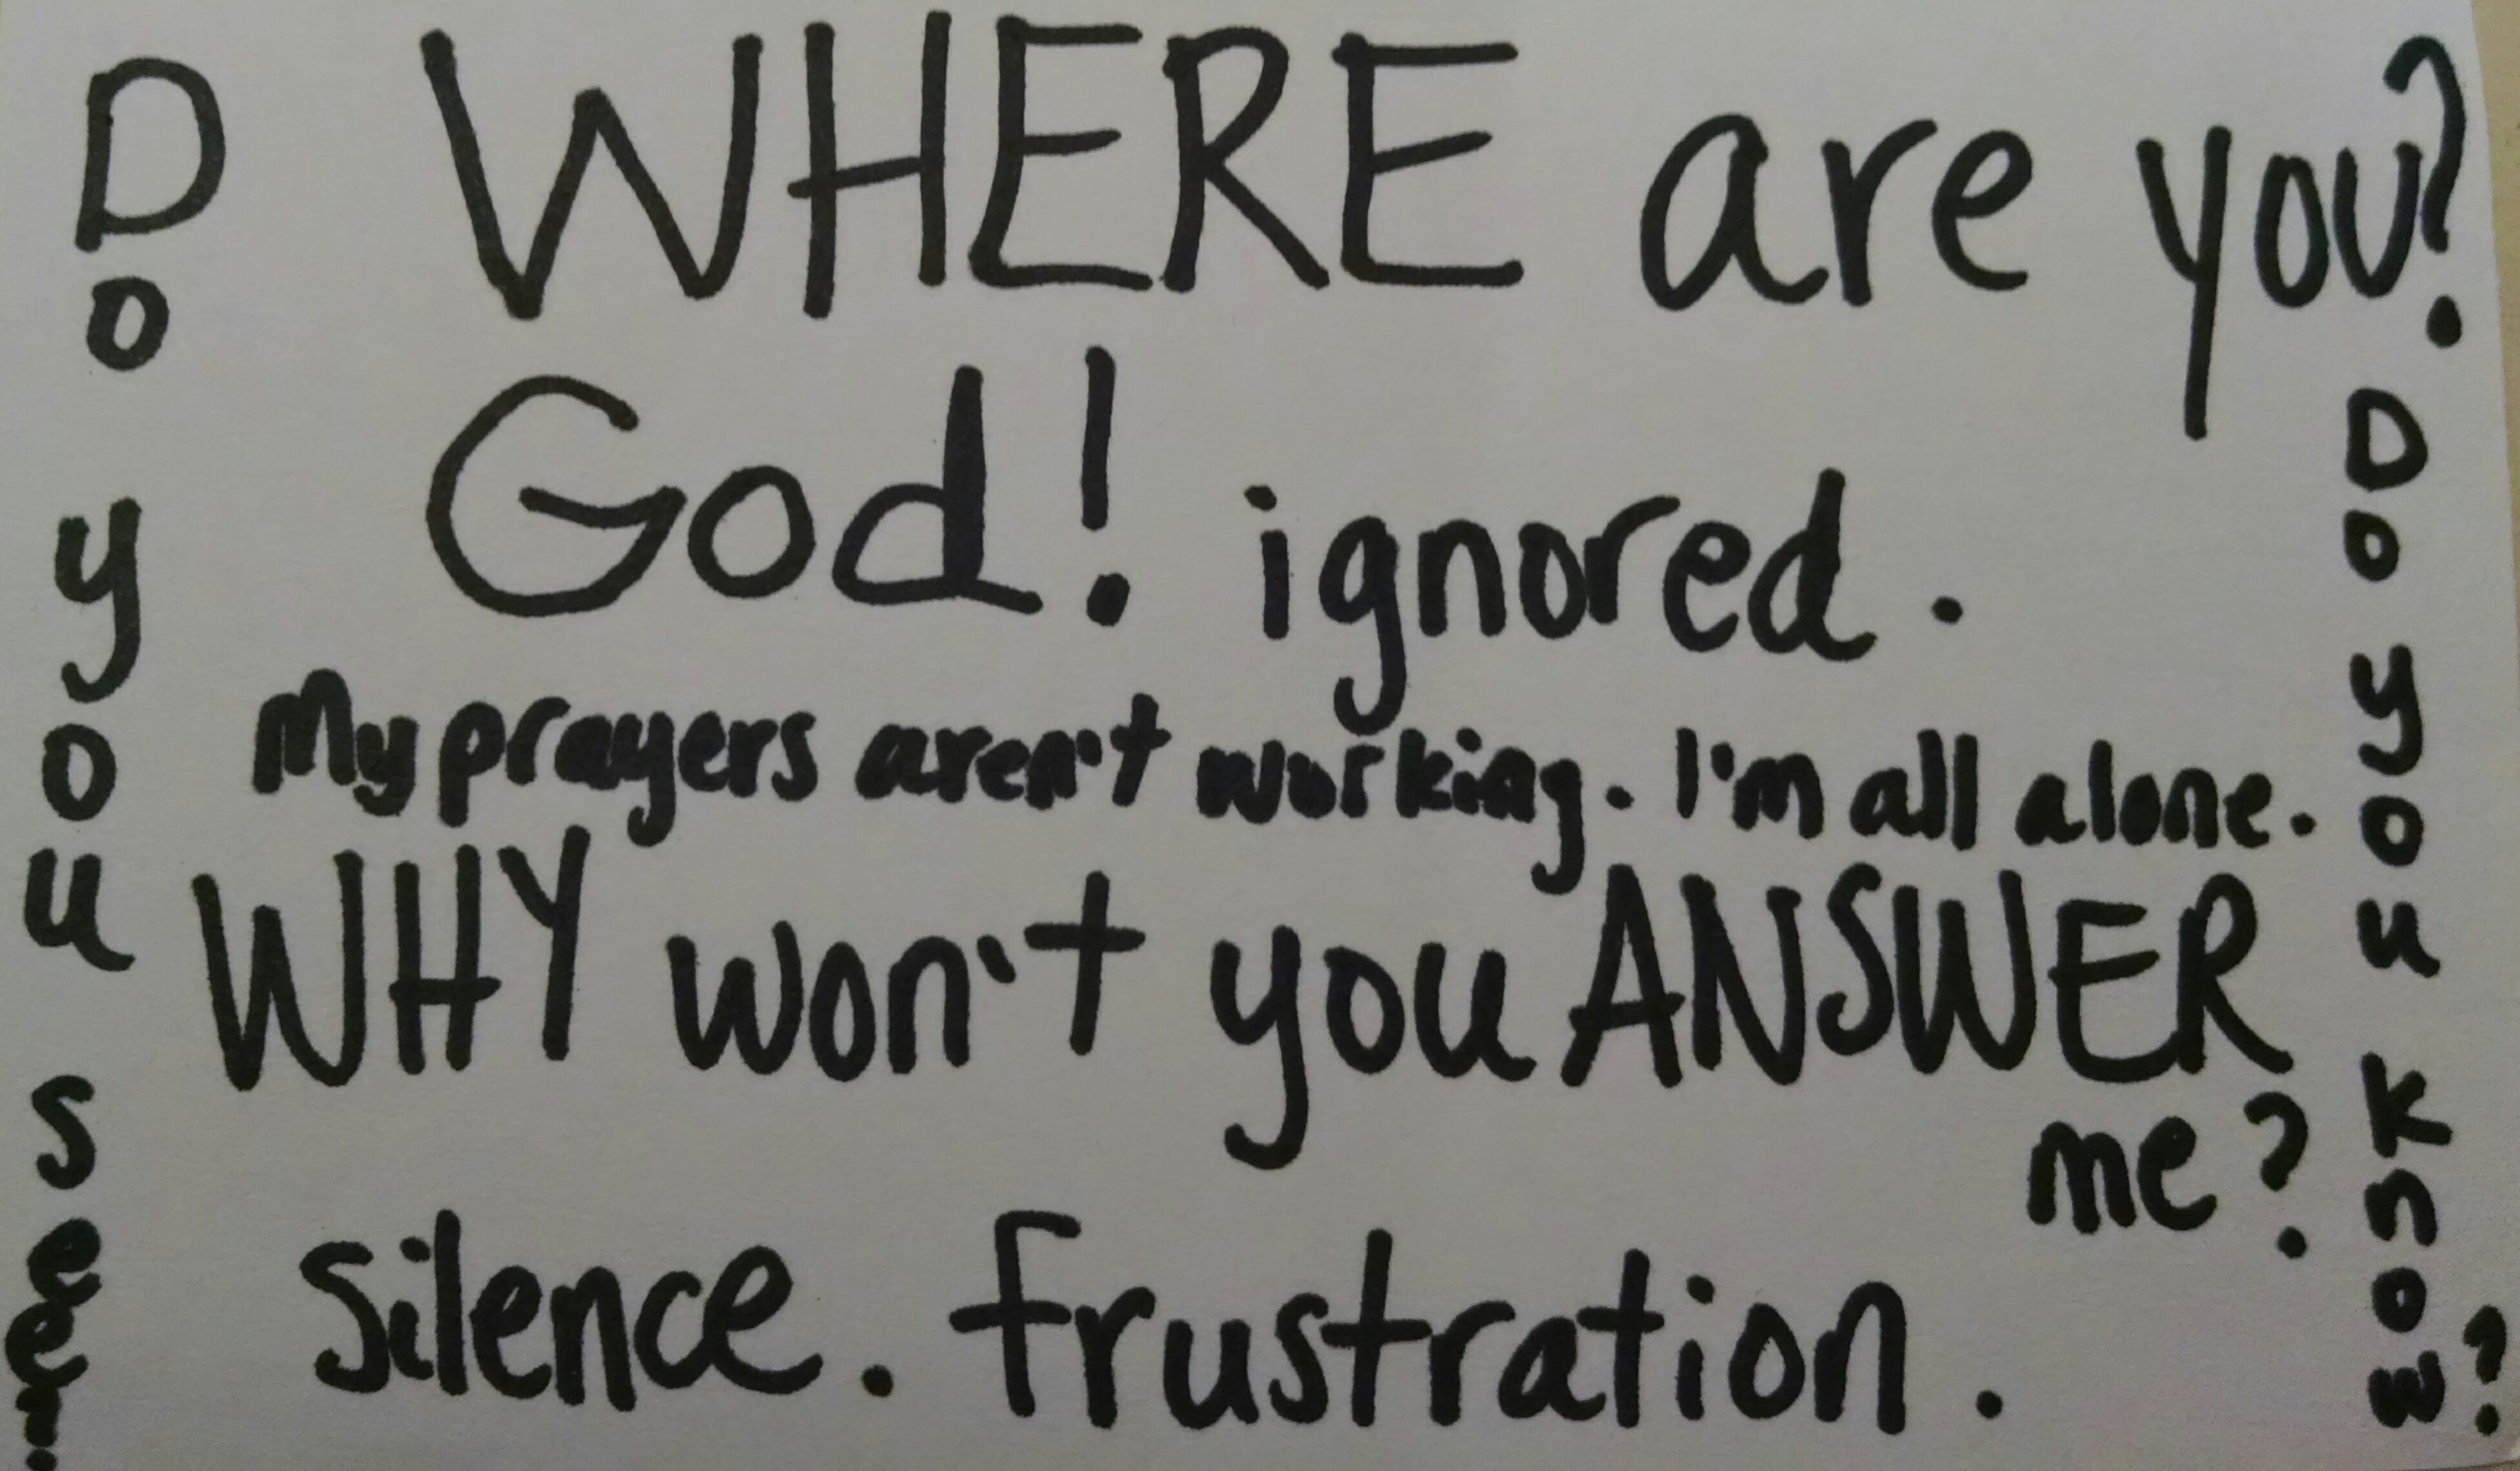 Do you see?
WHERE are you?
God! ignored.
My prayers aren't working. I'm all alone.
WHY won't you ANSWER
me?
silence. frustration.
Do you know?